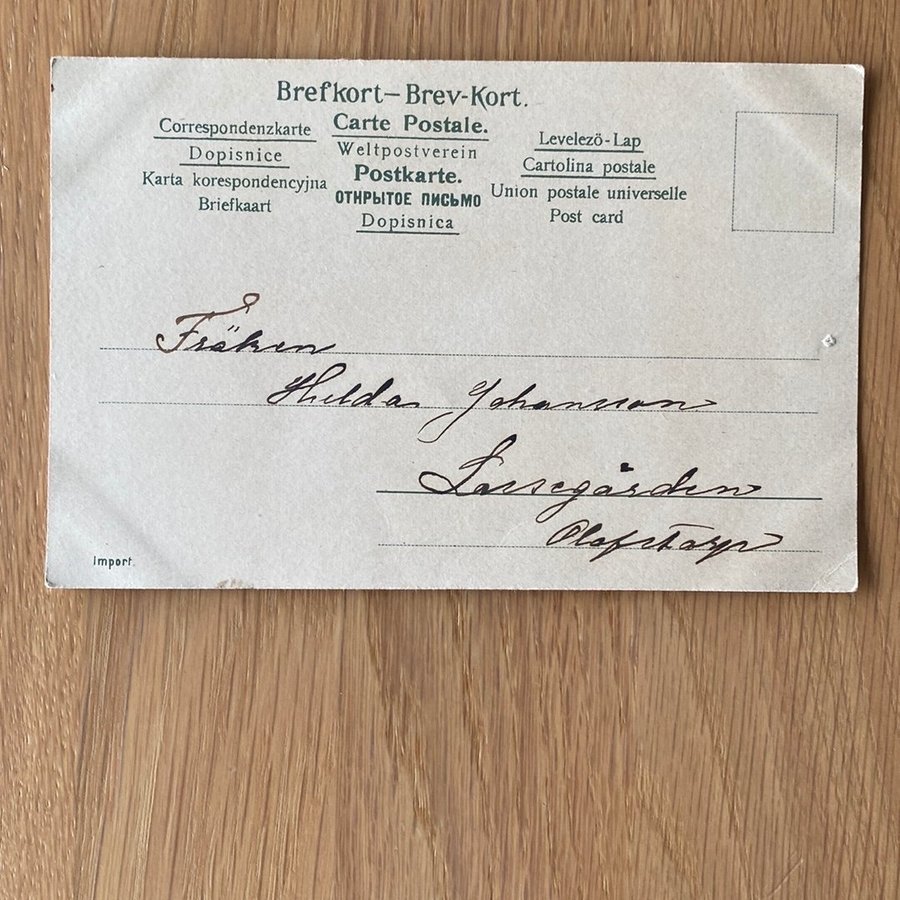 Brefkort–Brev-Kort.
Correspondenzkarte
Dopisnice
Karta korespondencyjna
Briefkaart
Carte Postale.
Weltpostverein
Postkarte.
ОТКРЫТОЕ ПИСЬМО
Dopisnica
Levelezö-Lap
Cartolina postale
Union postale universelle
Post card
Fröken
Hilda Johansson
Lassegården
Olofstorp
Import.